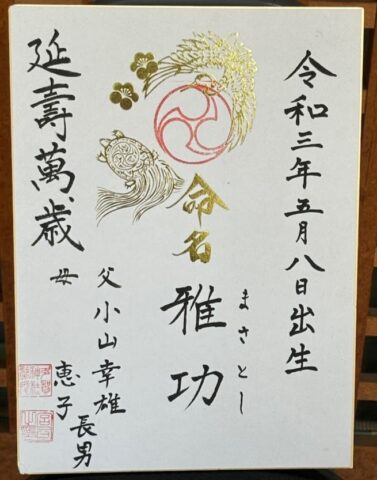 令和三年五月八日出生
命名
雅功
まさとし
父 小山幸雄
母 恵子
長男
延壽萬歳